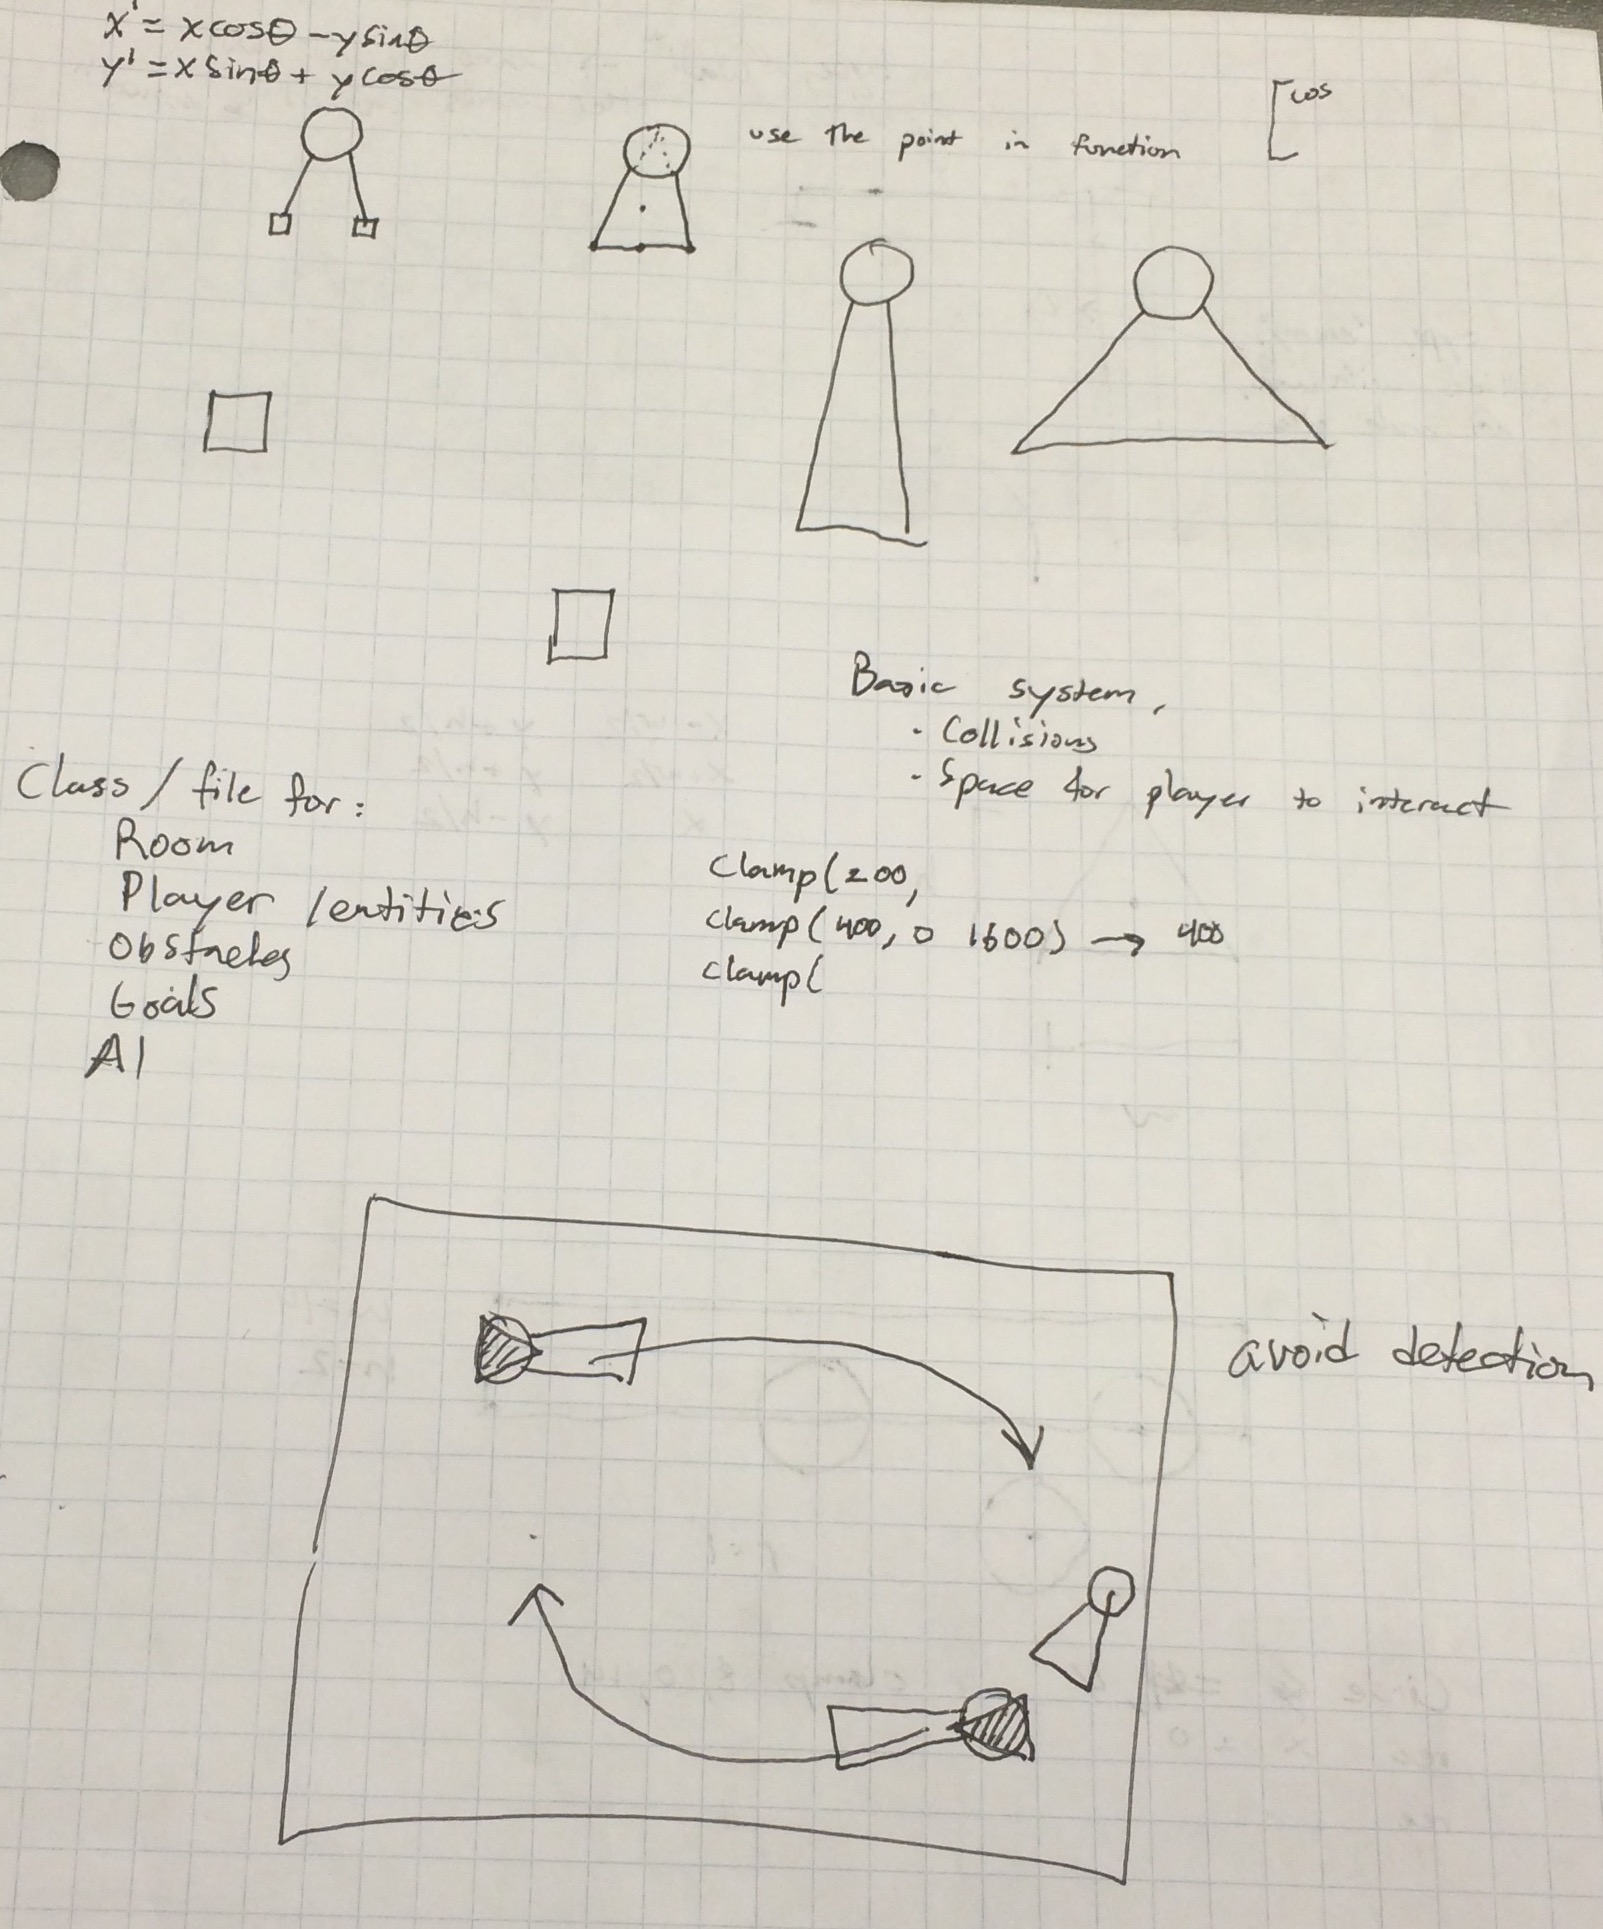 x' = x cosθ - y sinθ
y' = x sinθ + y cosθ
[cos
use the point in function
Basic system,
· Collisions
· Space for player to interact
Class / file for:
Room
Player / entities
Obstacles
Goals
AI
Clamp(200,
clamp(400, 0 1600) → 400
clamp(
avoid detection